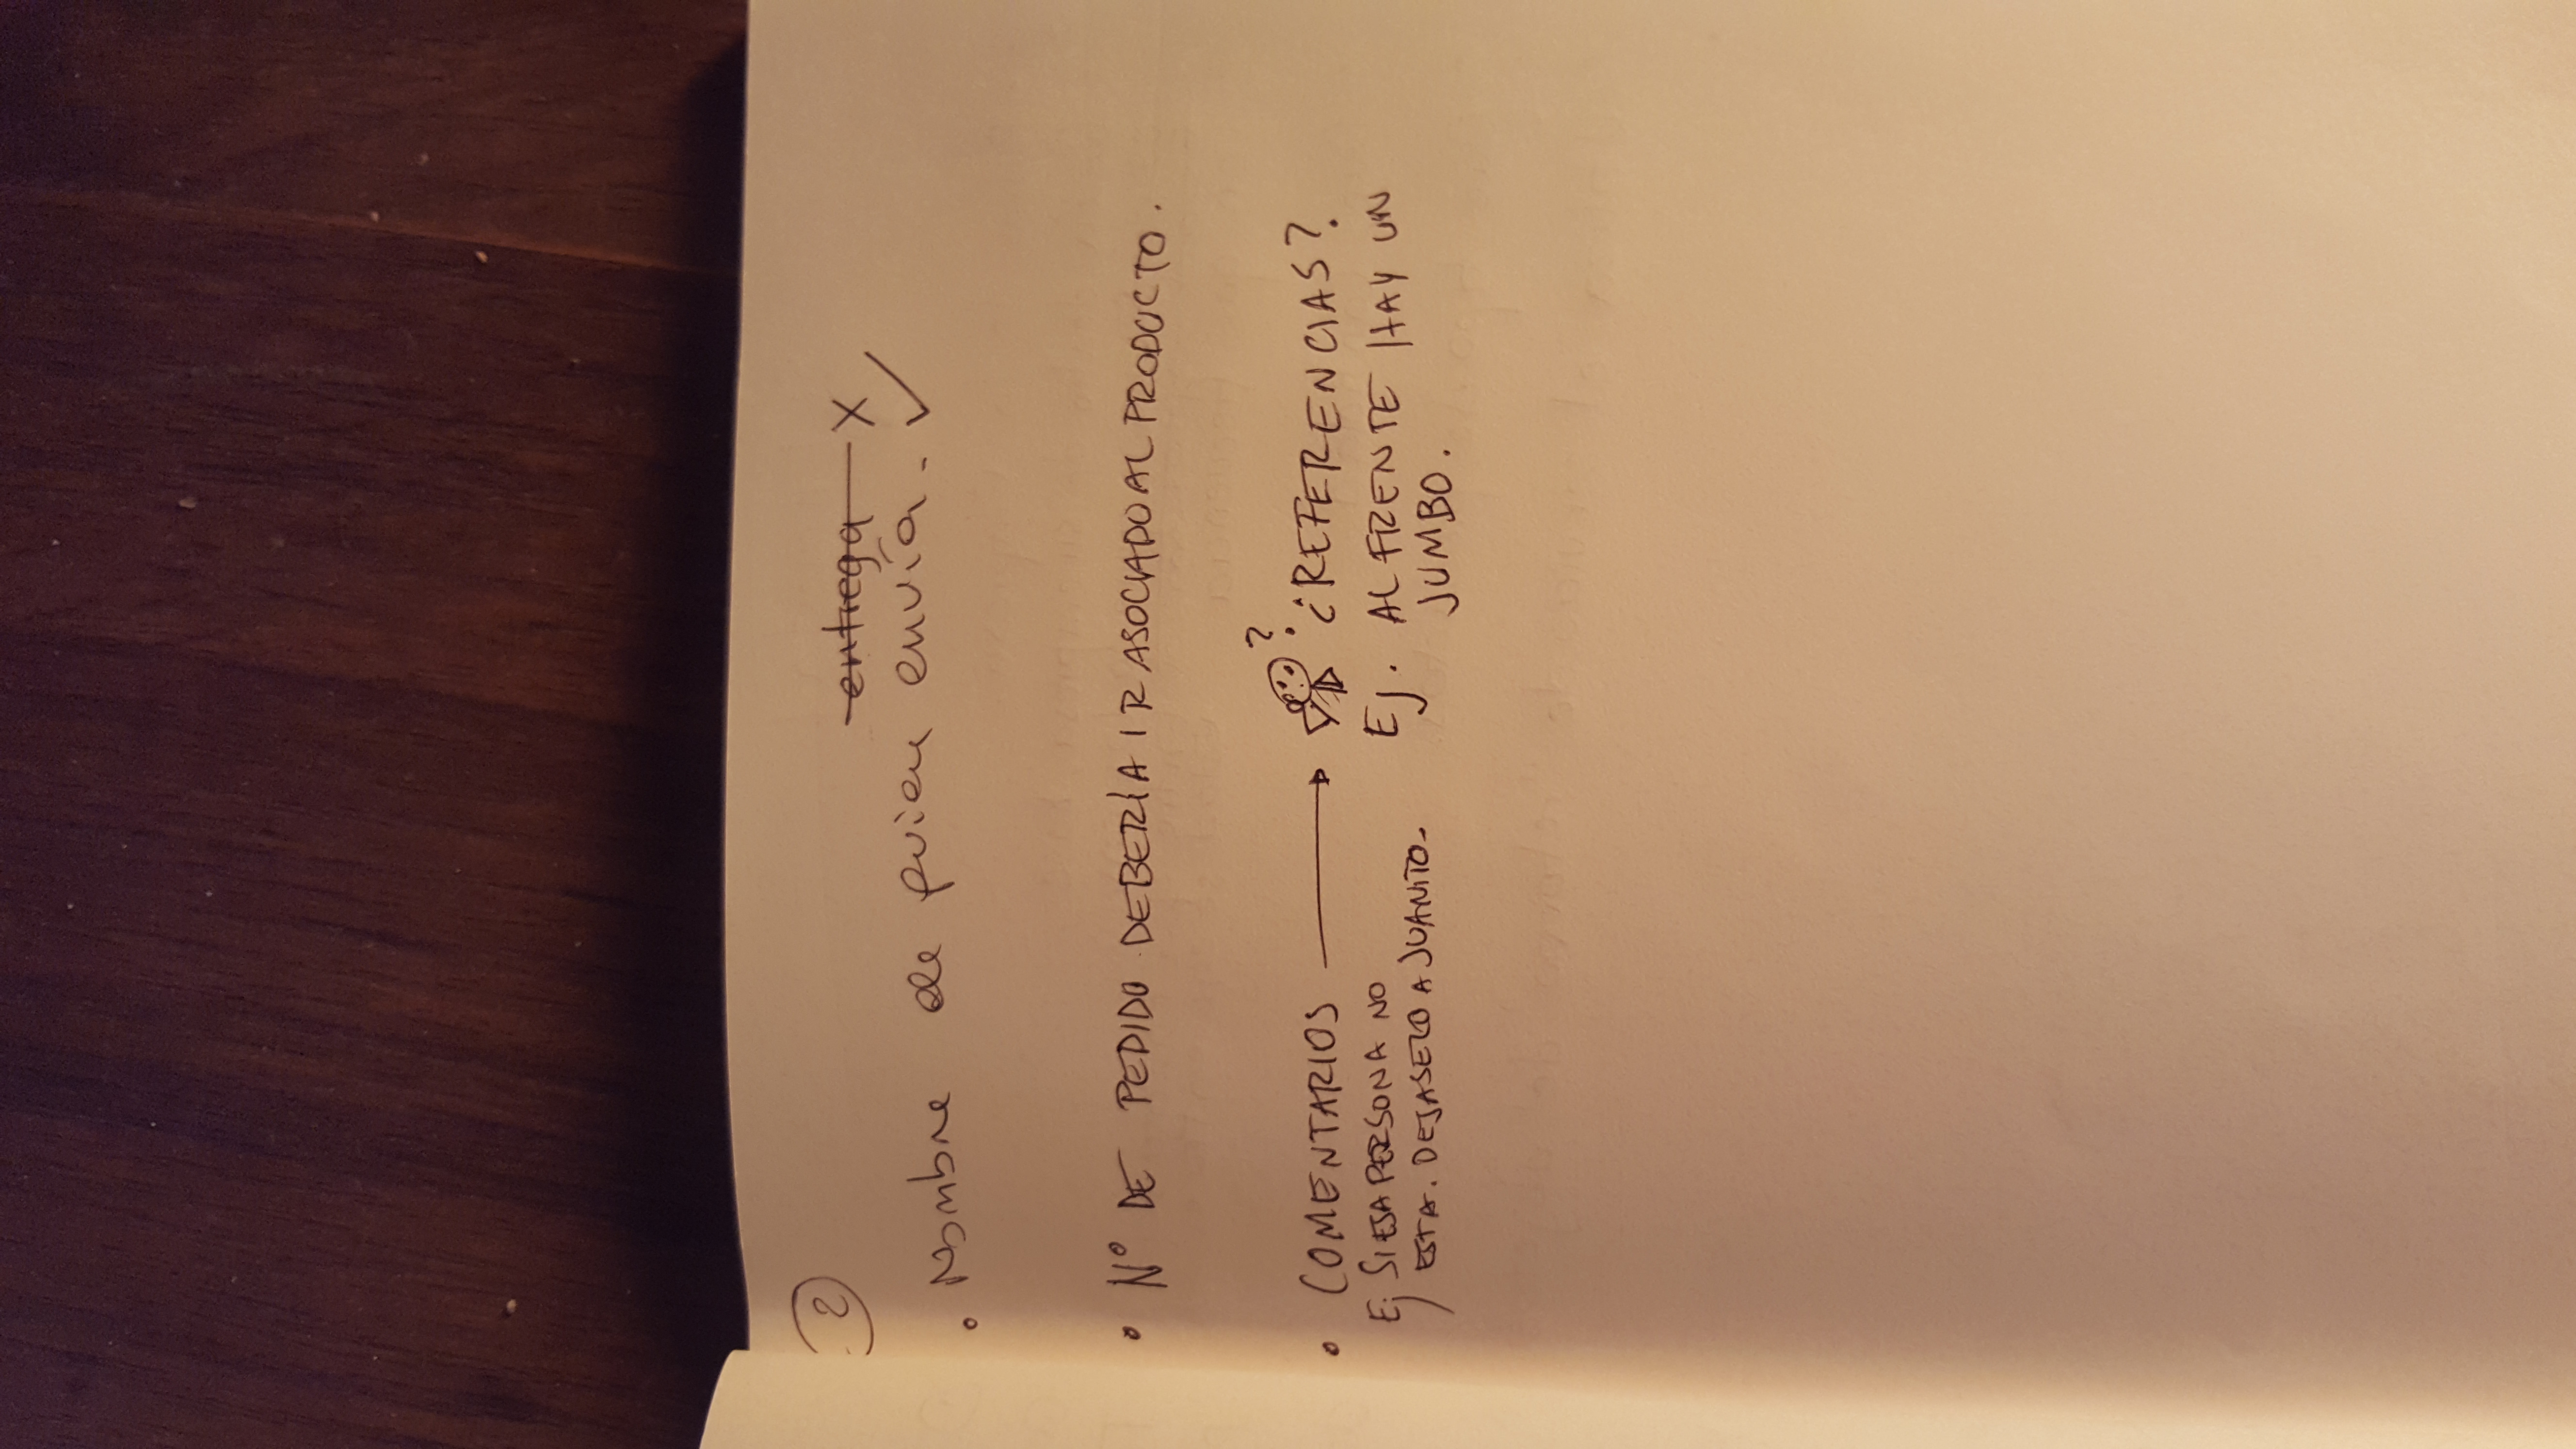 2
entrega X
• Nombre de quien envía. ✓
• N° DE PEDIDO DEBERÍA IR ASOCIADO AL PRODUCTO.
• COMENTARIOS → ? ¿REFERENCIAS?
Ej SI ESA PERSONA NO
ESTA. DEJASELO A JUANITO.
Ej. AL FRENTE HAY UN
JUMBO.